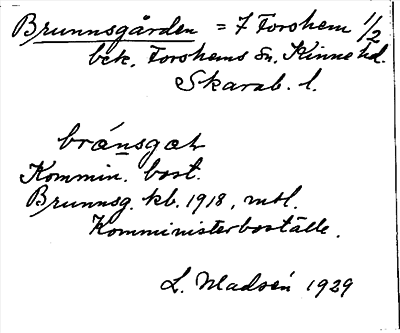 Brunnsgården = 7 Forshem 1/2
bck. Forshems sn. Kinne hd.
Skarab. l.
bránsgaɳ
Kommin. bost.
Brunnsg. kb. 1918, mtl.
Komministerboställe.
L. Madsén 1929